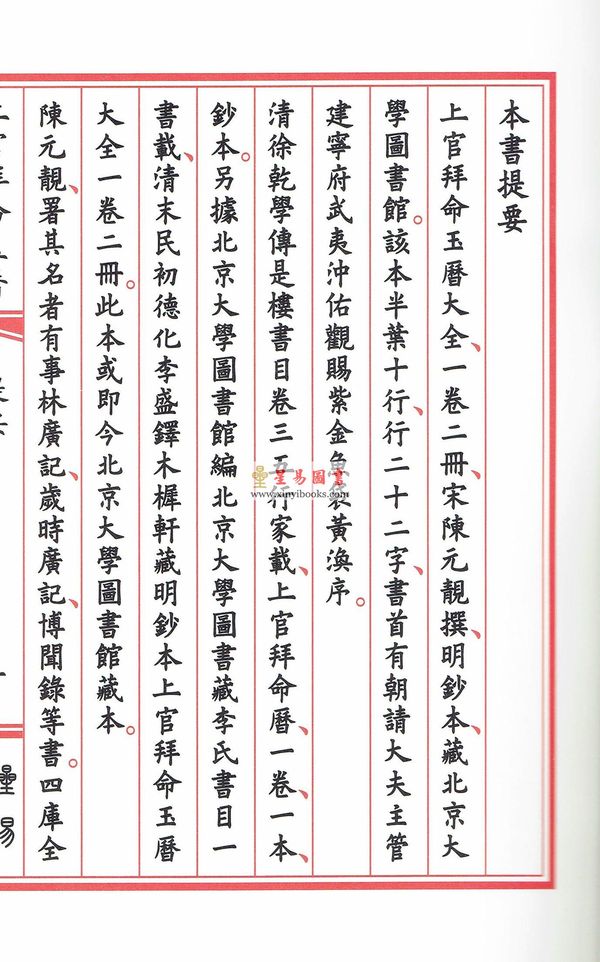 本書提要
上官拜命玉曆大全、一卷二冊、宋陳元靚撰、明鈔本、藏北京大
學圖書館。該本半葉十行、行二十二字、書首有朝請大夫主管
建寧府武夷沖佑觀賜紫金魚袋黃渙序。
清徐乾學傳是樓書目卷三五行家載、上官拜命曆、一卷一本、
鈔本。另據北京大學圖書館編北京大學圖書藏李氏書目一
書載、清末民初德化李盛鐸木樨軒藏明鈔本上官拜命玉曆
大全一卷二冊。此本或即今北京大學圖書館藏本。
陳元靚、署其名者有事林廣記、歲時廣記、博聞錄等書。四庫全
星易圖書
www.xinyibooks.com
星易